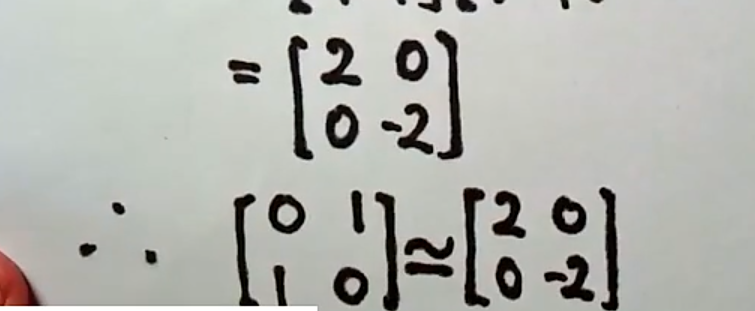 = [2 0
0 -2]
∴ [0 1
1 0] ≃ [2 0
0 -2]